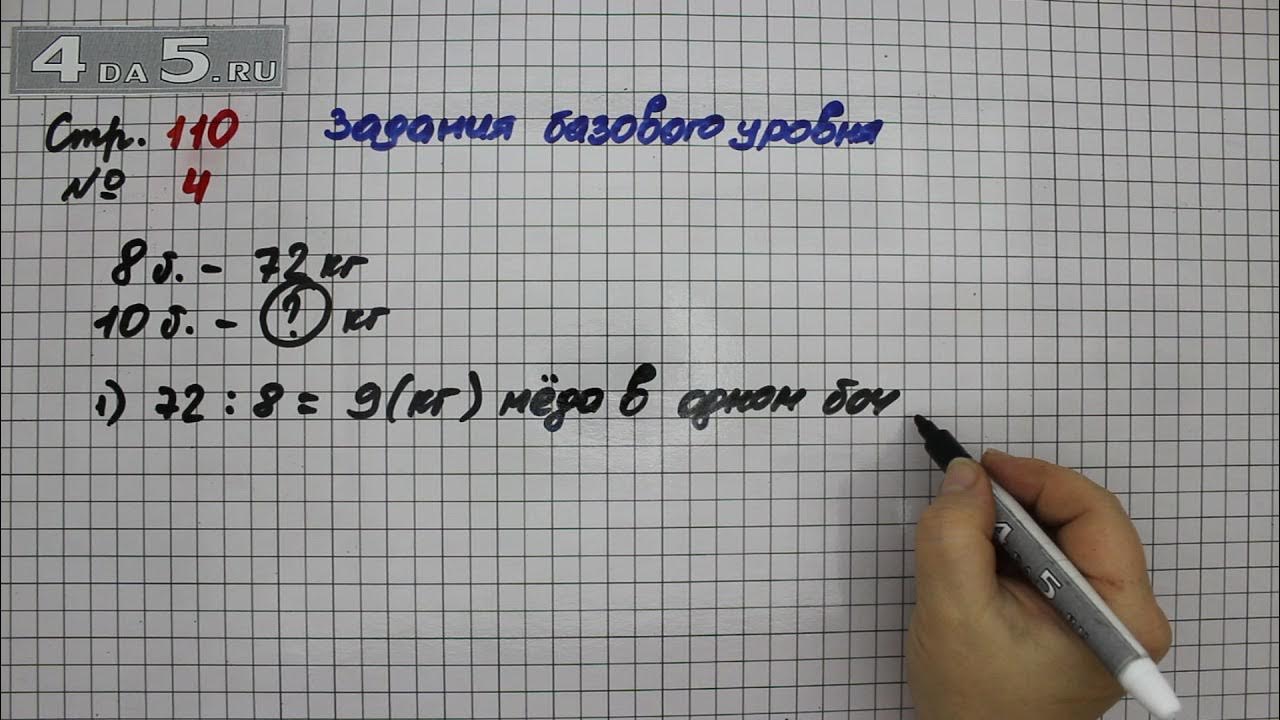 4DA5.RU
Стр. 110 Задания базового уровня
№ 4
8 б. - 72 кг
10 б. - ? кг
1) 72 : 8 = 9 (кг) мёда в одном боч
4 DA 5 .RU